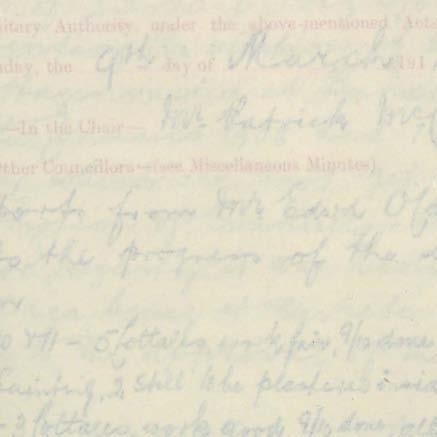 itary Authority, under the above-mentioned Acts
day, the 9th day of March 191
—In the Chair— Mr. Patrick Mc
Other Councillors—(see Miscellaneous Minutes)
from Mr Edwd
the progress of the
5 Cottages, work fair, 9/10 done
Painting, 2 still to be plastered
3 Cottages, work good, 9/10 done